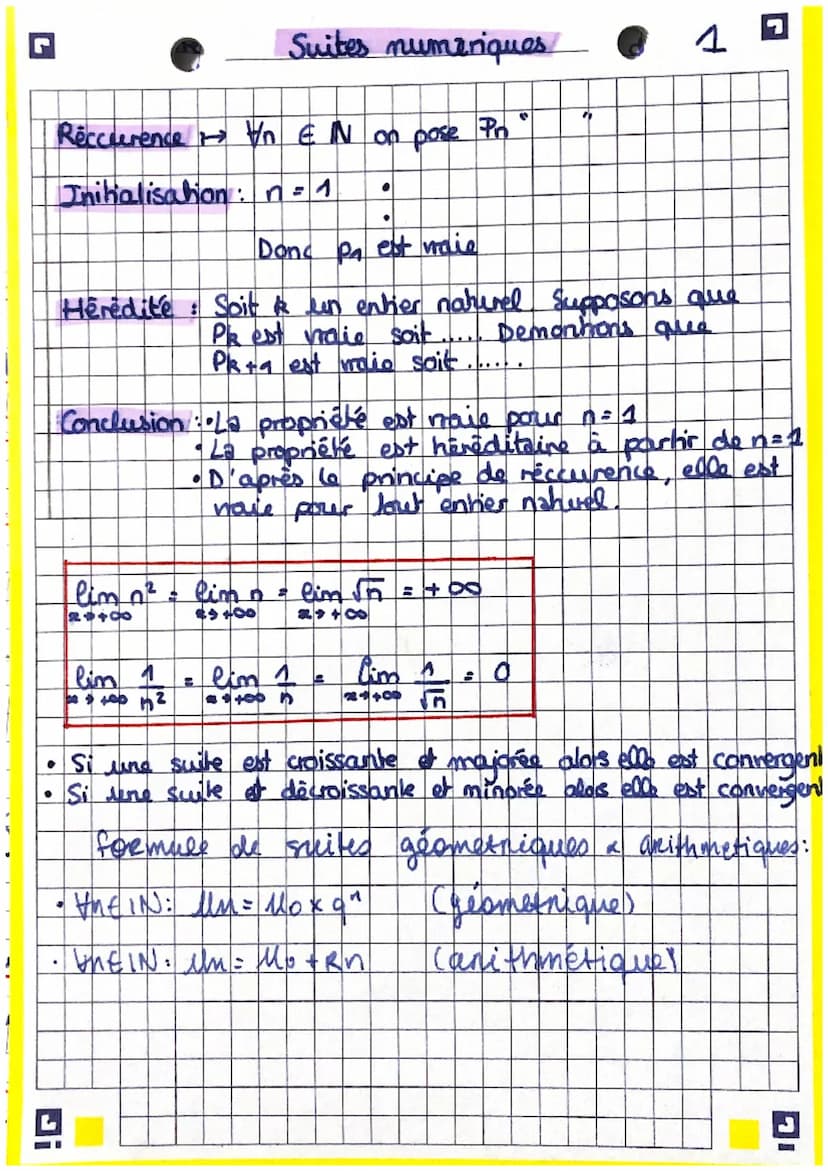 Suites numériques
1
Réccurence ↦ ∀n ∈ N on pose Pn " "
Initialisation : n = 1 :
Donc p1 est vraie
Hérédité : Soit k un entier naturel. Supposons que
Pk est vraie soit ..... Demontrons que
Pk+1 est vraie soit .......
Conclusion : • La propriété est vraie pour n = 1
• La propriété est héréditaire à partir de n = 1
• D'après le principe de réccurence, elle est
vraie pour tout entier naturel.
lim n² = lim n = lim √n = +∞
x→+∞ x→+∞ x→+∞
lim 1/n² = lim 1/n = lim 1/√n = 0
x→+∞ x→+∞ x→+∞
• Si une suite est croissante et majorée alors elle est convergent
• Si une suite et décroissante et minorée alors elle est convergent
formule de suites géometriques & arithmetiques:
• ∀n∈IN: Un = U0 x qⁿ (géometrique)
• ∀n∈IN: Un = U0 + Rn (arithmétique)